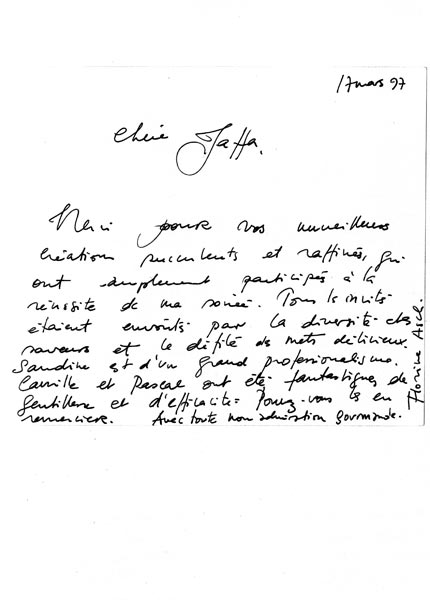 17 mars 97
Chère Jaffa.
Merci pour vos merveilleuses
créations succulents et raffinés, qui
ont amplement participés à la
réussite de ma soirée. Tous ls invités
étaient envoûtés par la diversité des
saveurs et le défilé des mets délicieux.
Sandrine est d'un grand professionalisme.
Camille et Pascal ont été fantastiques de
gentillesse et d'efficacité. Pouvez-vous ls en
remercier. Avec toute mon admiration gourmande.
Florine Asch.